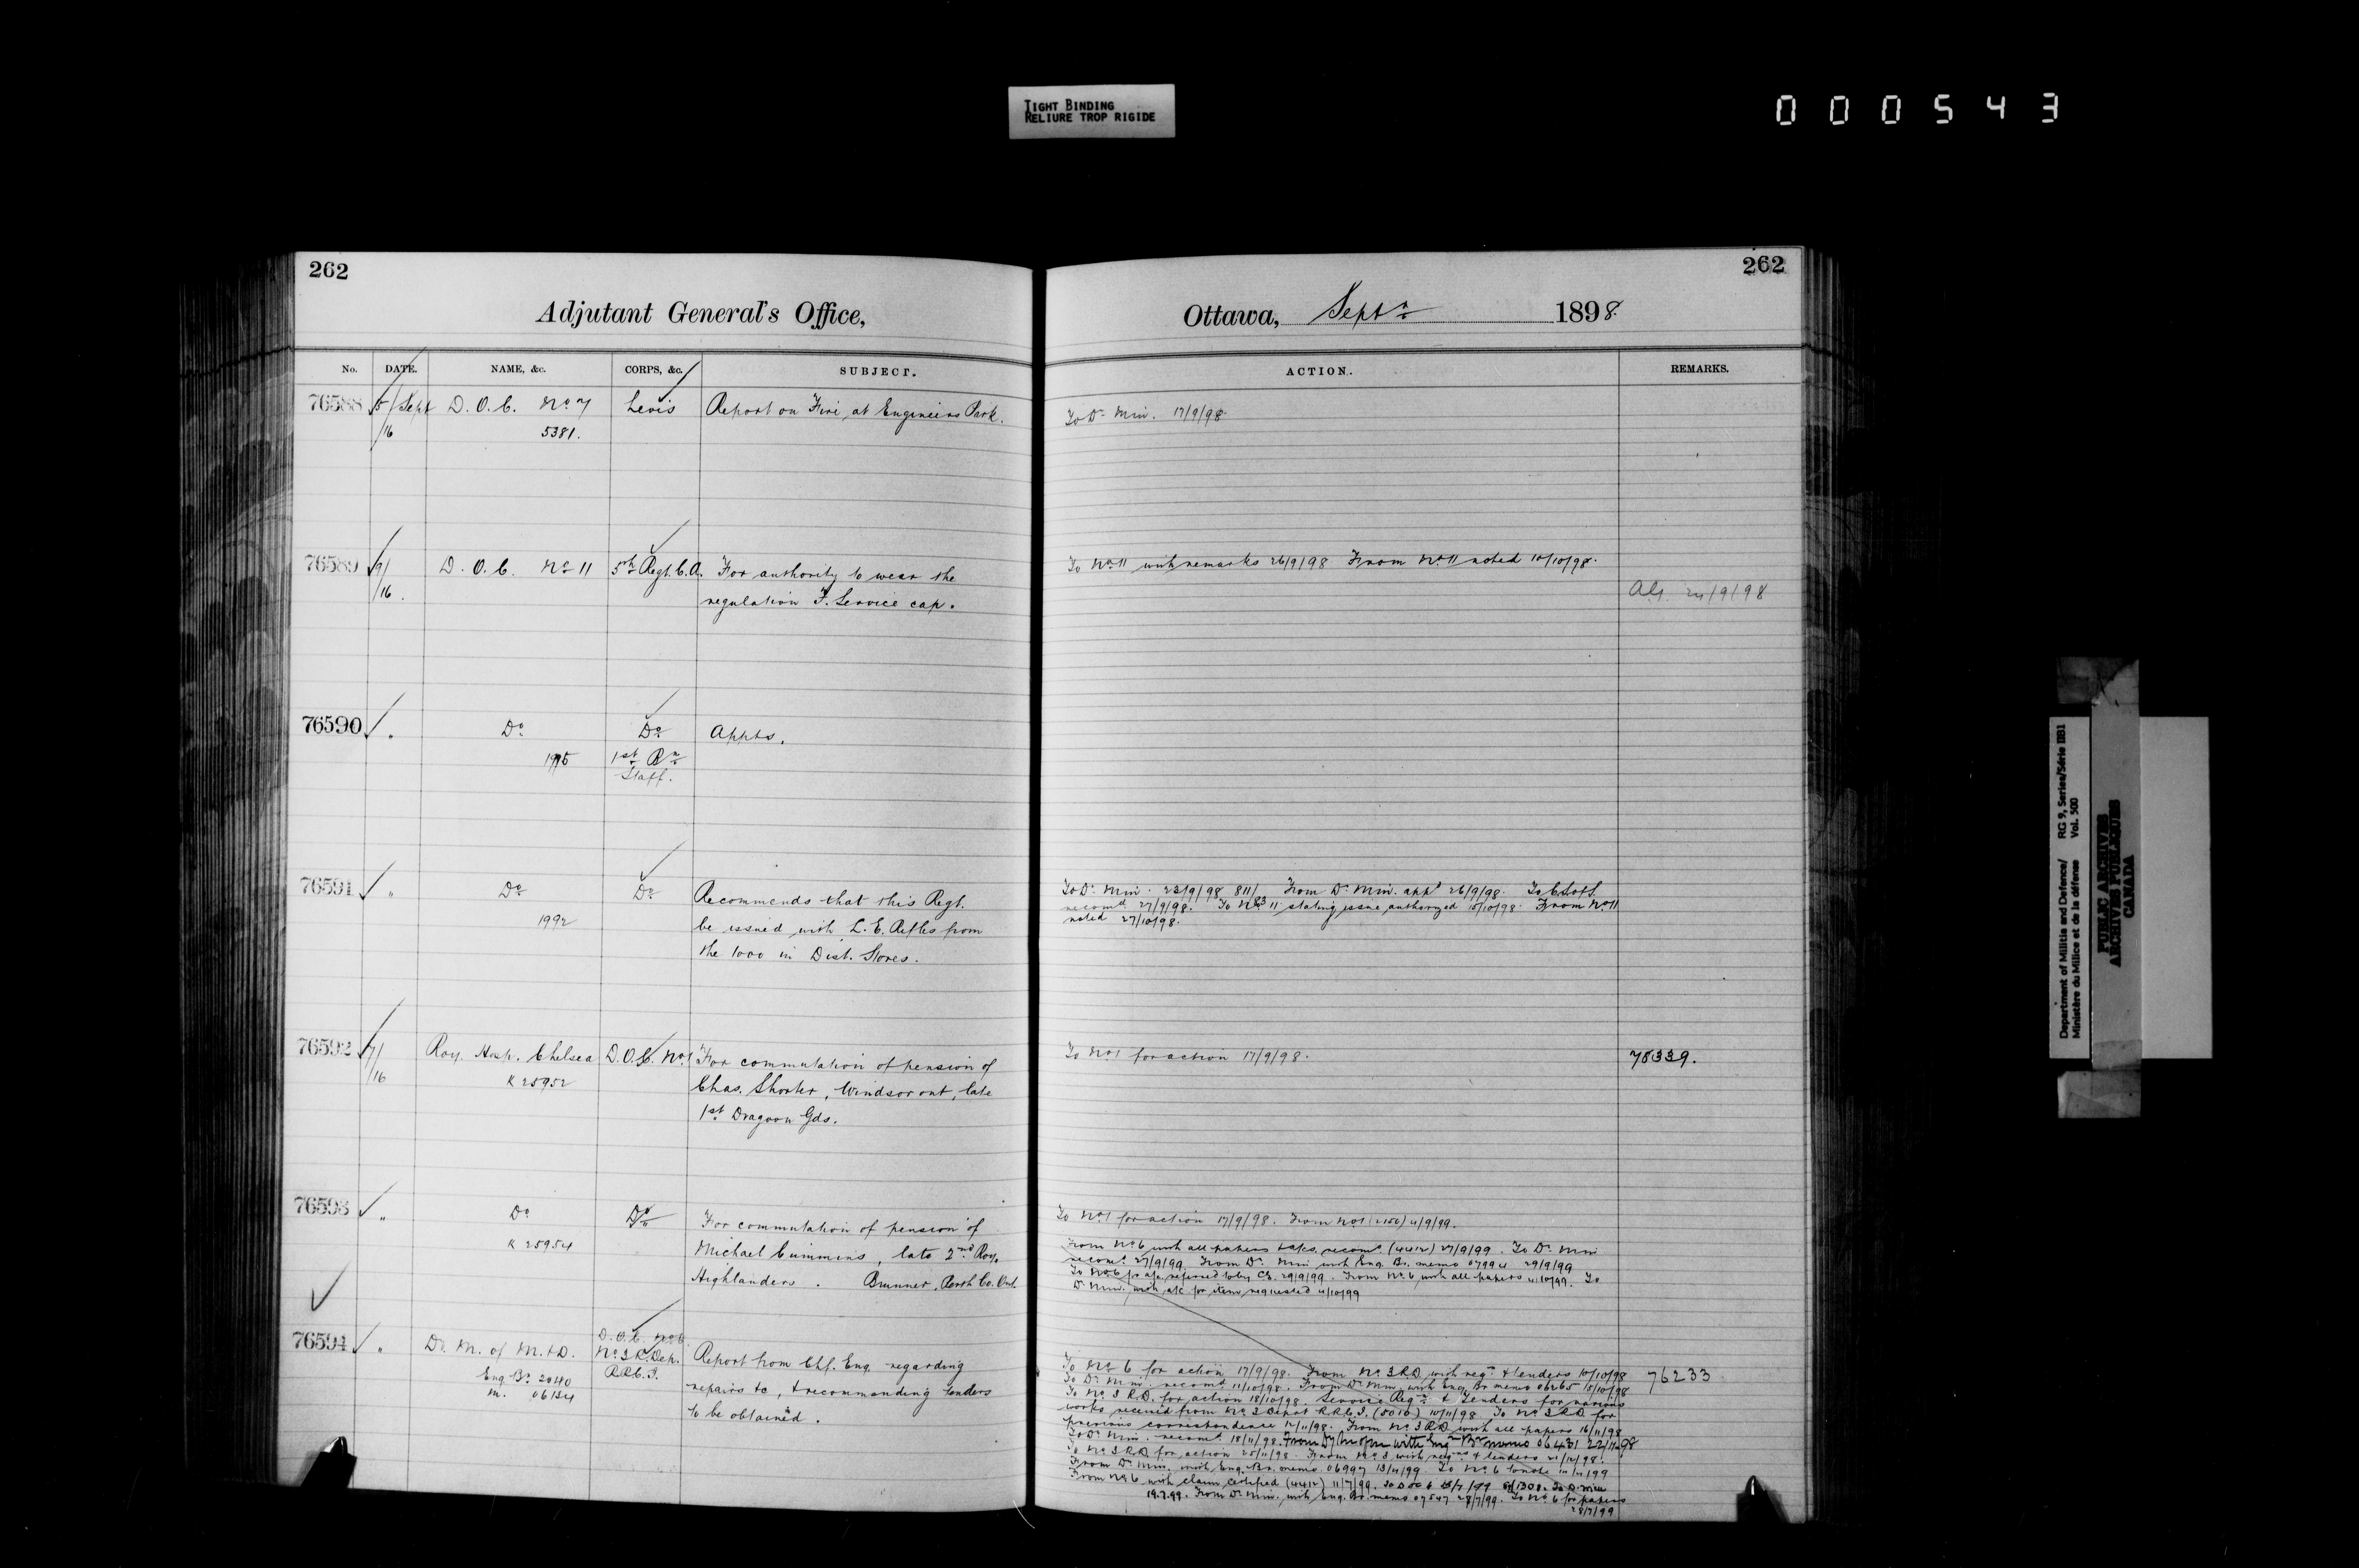 TIGHT BINDING
RELIURE TROP RIGIDE
000543
262
Adjutant General's Office,
No. DATE. NAME, &c. CORPS, &c. SUBJECT.
76588 5/Sept D.O.C. No 7 Levis Report on Fire at Engineers Park.
/16 5381.
76589 9/ D.O.C. No 11 5th Regt. C.A. For authority to wear the
/16. regulation F. Service cap.
76590 " Do Do Appts.
1995 1st Bn
Staff.
76591 " Do Do Recommends that this Regt.
1992 be issued with L.E. Rifles from
the 1000 in Dist. Stores.
76592 7/ Roy. Hosp. Chelsea D.O.C. No 1 For commutation of pension of
/16 K 25952 Chas. Shorter, Windsor Ont, late
1st Dragoon Gds.
76593 " Do Do For commutation of pension of
K 25954 Michael Cummins, late 2nd Roy.
Highlanders. Brunner, Perth Co. Ont.
76594 " D. M. of M. & D. D.O.C. No 6
No 3 R. Dep. Report from Chf. Eng. regarding
Eng Br. 2040 R.R.C.I. repairs &c, & recommending tenders
M. 06134 to be obtained.
262
Ottawa, Septr 1898.
ACTION. REMARKS.
To D. Min. 17/9/98.
To No 11 with remarks 26/9/98 From No 11 noted 10/10/98.
24/9/98
To D. Min. 23/9/98 From D. Min. appd 26/9/98.
recomd 27/9/98. To No 11 stating issue authorized 15/10/98. From No 11
noted 27/10/98.
To No 1 for action 17/9/98. 78339.
To No 1 for action 17/9/98. From No 1 4/9/99.
From No 6 with all papers recomd (4412) 27/9/99. To D. Min
recomd 27/9/99 From D. Min with Eng. Br. memo 07994 29/9/99
To No 6 for referred to by 29/9/99. From No 6 with all papers 4/10/99. To
D. Min. with a/c for item requested 4/10/99
To No 6 for action 17/9/98. From No 3 R.D. with reqn & tenders 10/10/98 76233
To D. Min. recomd 11/10/98. From D. Min. with Eng. Br. memo 06265 15/10/98
To No 3 R.D. for action 18/10/98. Service Reqn & Tenders for various
works received from No 3 Depot R.R.C.I. (5010) 10/11/98 To No 3 R.D. for
previous correspondence 12/11/98. From No 3 R.D. with all papers 16/11/98
To D. Min. recomd 18/11/98. From with Engr Br memo 06431 22/11/98
To No 3 R.D. for action 25/11/98 From No 3 with & tenders 21/12/98.
From D. Min. with Eng. Br. memo 06997 To No 6 to note
From No 6 with claim certified (4412) 11/7/99.
19.7.99. From D. Min. with Eng. Br. memo 07547 28/7/99. To No 6 for papers
28/7/99
Department of Militia and Defence/ RG 9, Series/Série IIB1
Ministère du Milice et de la défense Vol. 500
PUBLIC ARCHIVES
ARCHIVES PUBLIQUES
CANADA